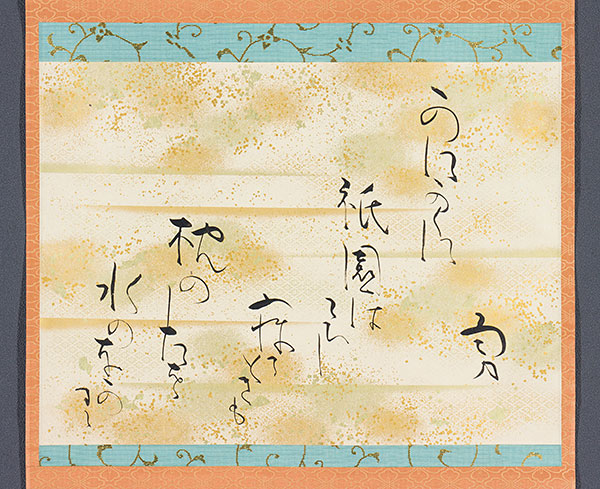 勇
かにかくに
祇園は
こひし
寐るときも
枕のしたを
水のなか
るゝ